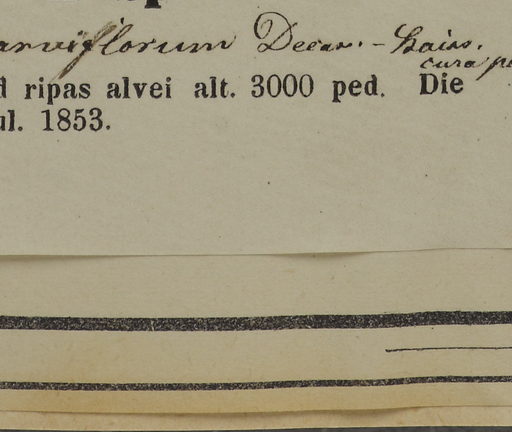 arviflorum Decsn. - Boiss.
cura
d ripas alvei alt. 3000 ped. Die
ul. 1853.